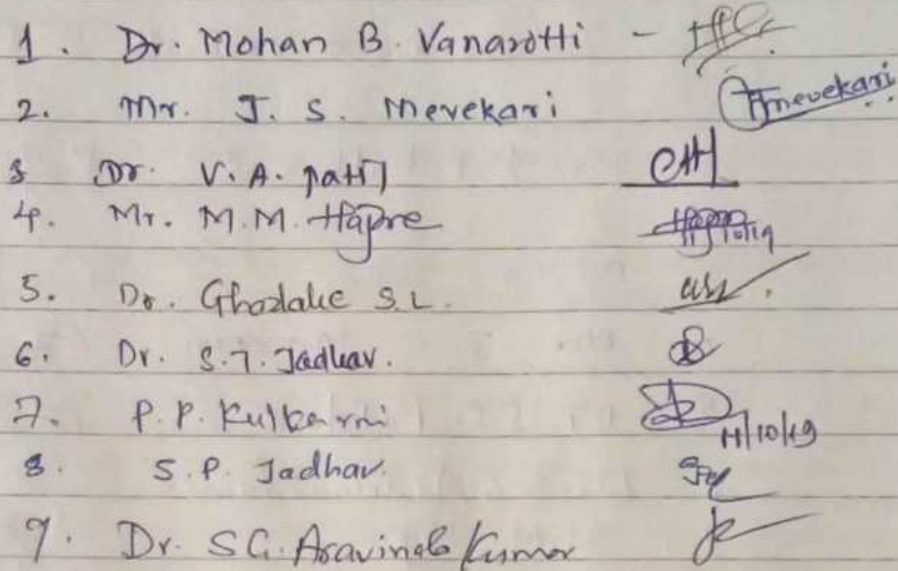 1. Dr. Mohan B. Vanarotti -
2. Mr. J. S. Mevekari Mevekari
3 Dr. V. A. Patil
4. Mr. M.M. Hapre
5. Dr. Ghodake S.L.
6. Dr. S.T. Jadhav.
7. P. P. Kulkarni 11/10/19
8. S.P. Jadhav.
9. Dr. SG. Aravinda Kumar